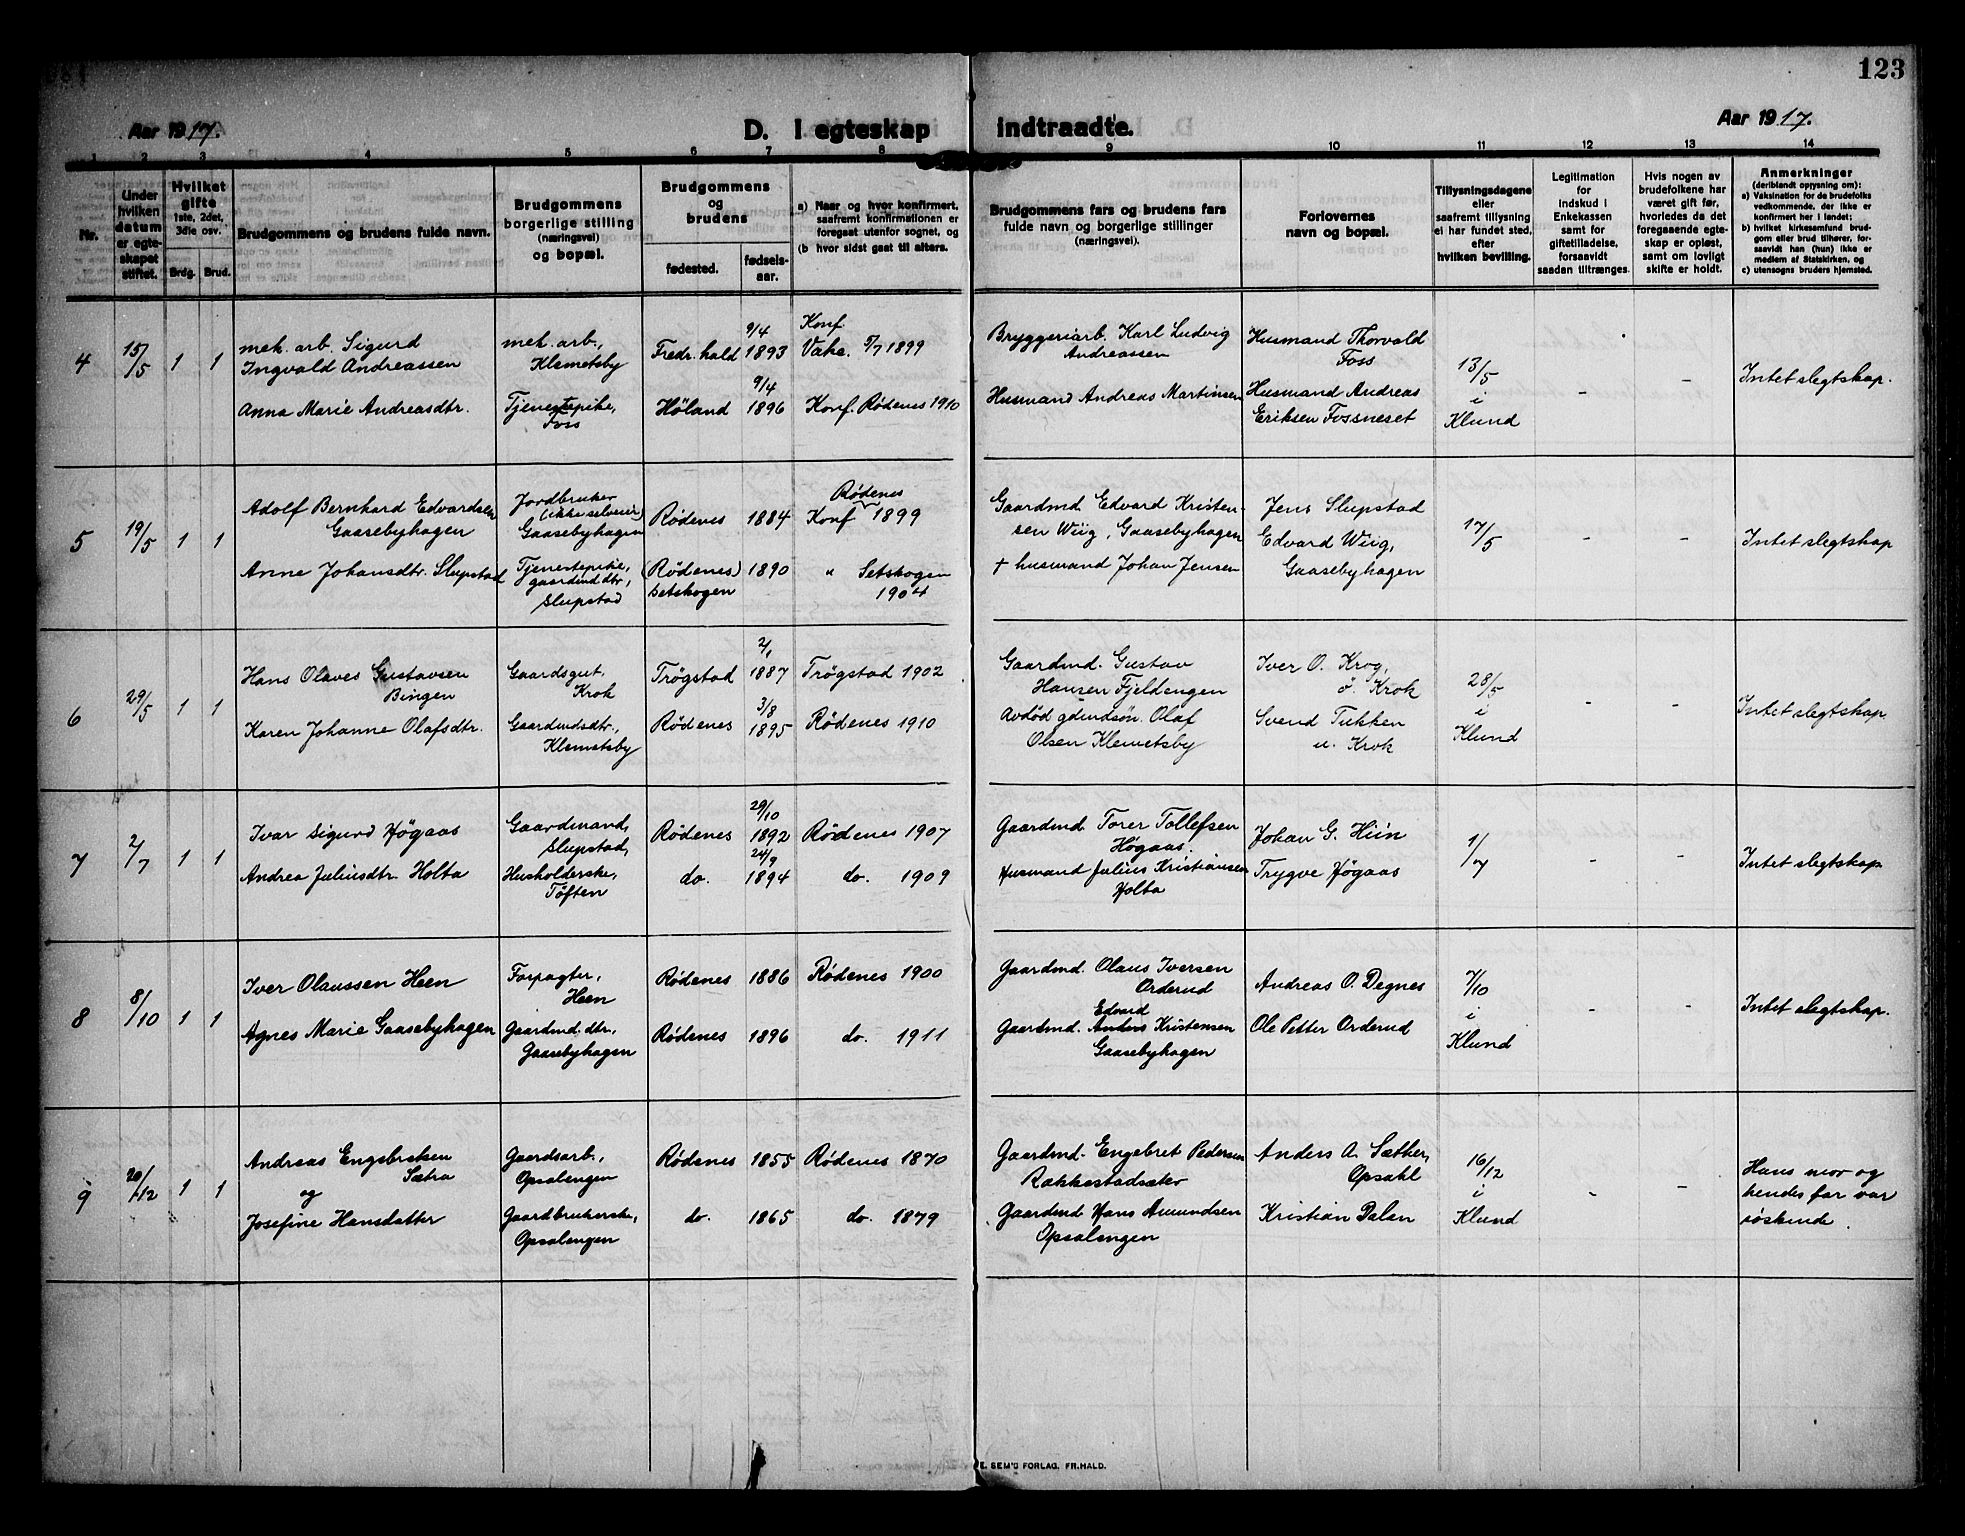 123
Aar 1917.
D. I egteskap indtraadte.
Aar 1917.
1 2 3 4 5 6 7 8 9 10 11 12 13 14
Nr.
Under
hvilken
datum
er egte-
skapet
stiftet.
Hvilket
gifte
1ste, 2det,
3die osv.
Brdg. Brud.
Brudgommens og brudens fulde navn.
Brudgommens
borgerlige stilling
(næringsvei)
og bopæl.
Brudgommens
og
brudens
fødested.
fødsels-
aar.
a) Naar og hvor konfirmert,
saafremt konfirmationen er
foregaat utenfor sognet, og
(b hvor sidst gaat til alters.
Brudgommens fars og brudens fars
fulde navn og borgerlige stillinger
(næringsvei).
Forlovernes
navn og bopæl.
Tillysningsdagene
eller
saafremt tillysning
ei har fundet sted,
efter
hvilken bevilling.
Legitimation
for
indskud i
Enkekassen
samt for
giftetilladelse,
forsaavidt
saadan tiltrænges.
Hvis nogen av
brudefolkene har
været gift før,
hvorledes da det
foregaaende egte-
skap er opløst,
samt om lovligt
skifte er holdt.
Anmerkninger
(deriblandt oplysning om):
a) Vaksination for de brudefolks
vedkommende, der ikke er
konfirmert her i landet;
b) hvilket kirkesamfund brud-
gom eller brud tilhører, for-
saavidt han (hun) ikke er
medlem af Statskirken, og
c) utensogns bruders hjemsted.
4
15/5
1 1
mek. arb. Sigurd
Ingvald Andreassen
Anna Marie Andreasdtr.
mek. arb.,
Klemetsby
Tjenestepike,
Foss
Fredr.hald
Høland
9/4
1893
9/4
1896
Konf.
1899
Konf. Rødenes 1910
Bryggeriarb. Karl Ludvig
Andreassen
Husmand Andreas Martinsen
Husmand Thorvald
Foss
Husmand Andreas
Eriksen Fossneset
13/5
i
Klund
-
-
Intet slegtskap.
5
19/5
1 1
Adolf Bernhard Edvardsen
Gaasebyhagen
Anne Johansdtr. Slupstad
Jordbruker
(ikke selveier)
Gaasebyhagen
Tjenestepike,
gaardmd dtr,
Slupstad
Rødenes
(Rødenes)
Setskogen
1884
1890
Rødenes
Konf 1899
" Setskogen
1904
Gaardmd. Edvard Kristen-
sen Wiig, Gaasebyhagen
+ husmand Johan Jensen
Jens Slupstad
Edvard Wiig,
Gaasebyhagen
17/5
-
-
Intet slegtskap
6
29/5
1 1
Hans Olaves Gustavsen
Bingen
Karen Johanne Olafsdtr.
Gaardsgut,
Krok
Gaardmdsdtr.,
Klemetsby
Trøgstad
Rødenes
2/1
1887
3/8
1895
Trøgstad 1902
Rødenes 1910
Gaardmd. Gustav
Hansen Fjeldengen
Avdød gdmdsøn. Olaf
Olsen Klemetsby
Iver O. Krog,
ö. Krok
Svend Tukken
n. Krok
28/5
i
Klund
-
-
Intet slegtskap.
7
2/7
1 1
Ivar Sigurd Høgaas
Andrea Juliusdtr. Holta
Gaardmand,
Slupstad,
Husholderske,
Töften
Rødenes
do.
29/10
1892
24/9
1894
Rødenes 1907
do. 1909
Gaardmd. Torer Tollefsen
Høgaas.
Husmand Julius Kristiansen
Holta
Johan G. Hiin
Trygve Høgaas
1/7
-
-
Intet slegtskap
8
8/10
1 1
Iver Olaussen Heen
Agnes Marie Gaasebyhagen
Forpagter,
Heen
Gaardmd. dtr,
Gaasebyhagen
Rødenes
Rødenes
1886
1896
Rødenes 1900
do. 1911
Gaardmd. Olaus Iversen
Orderud
Edvard
Gaardmd. Anders Kristensen
Gaasebyhagen
Andreas O. Degnes
Ole Petter Orderud
7/10
i
Klund
-
-
Intet slegtskap.
9
20/12
1 1
Andreas Engebretsen
Sætra
og
Josefine Hansdatter
Gaardsarb.,
Opsalengen
Gaardbrukerske,
Opsalengen
Rødenes
do.
1855
1865
Rødenes 1870
do. 1879
Gaardmd. Engebret Pedersen
Rakkestadsæter
Gaardmd Hans Amundsen
Opsalengen
Anders A. Sæther,
Opsahl
Kristian Dalen
16/12
i
Klund
-
-
Hans mor og
hendes far var
søskende.
E. SEM'S FORLAG, FR.HALD.